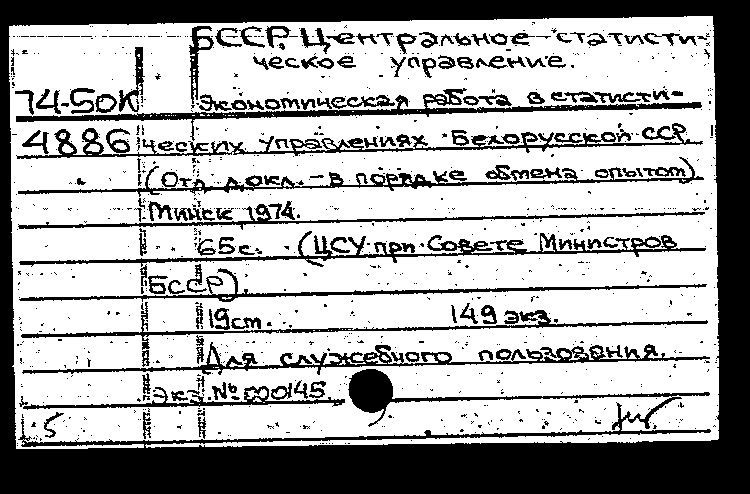 БССР. Центральное статисти-
ческое управление.
74-50К Экономическая работа в статисти-
4886 ческих управлениях Белорусской ССР.
(Отд. докл. - в порядке обмена опытом)
Минск, 1974.
65 с. (ЦСУ при Совете Министров
БССР).
19 см. 149 экз.
Для служебного пользования.
Экз. № 000145.
5